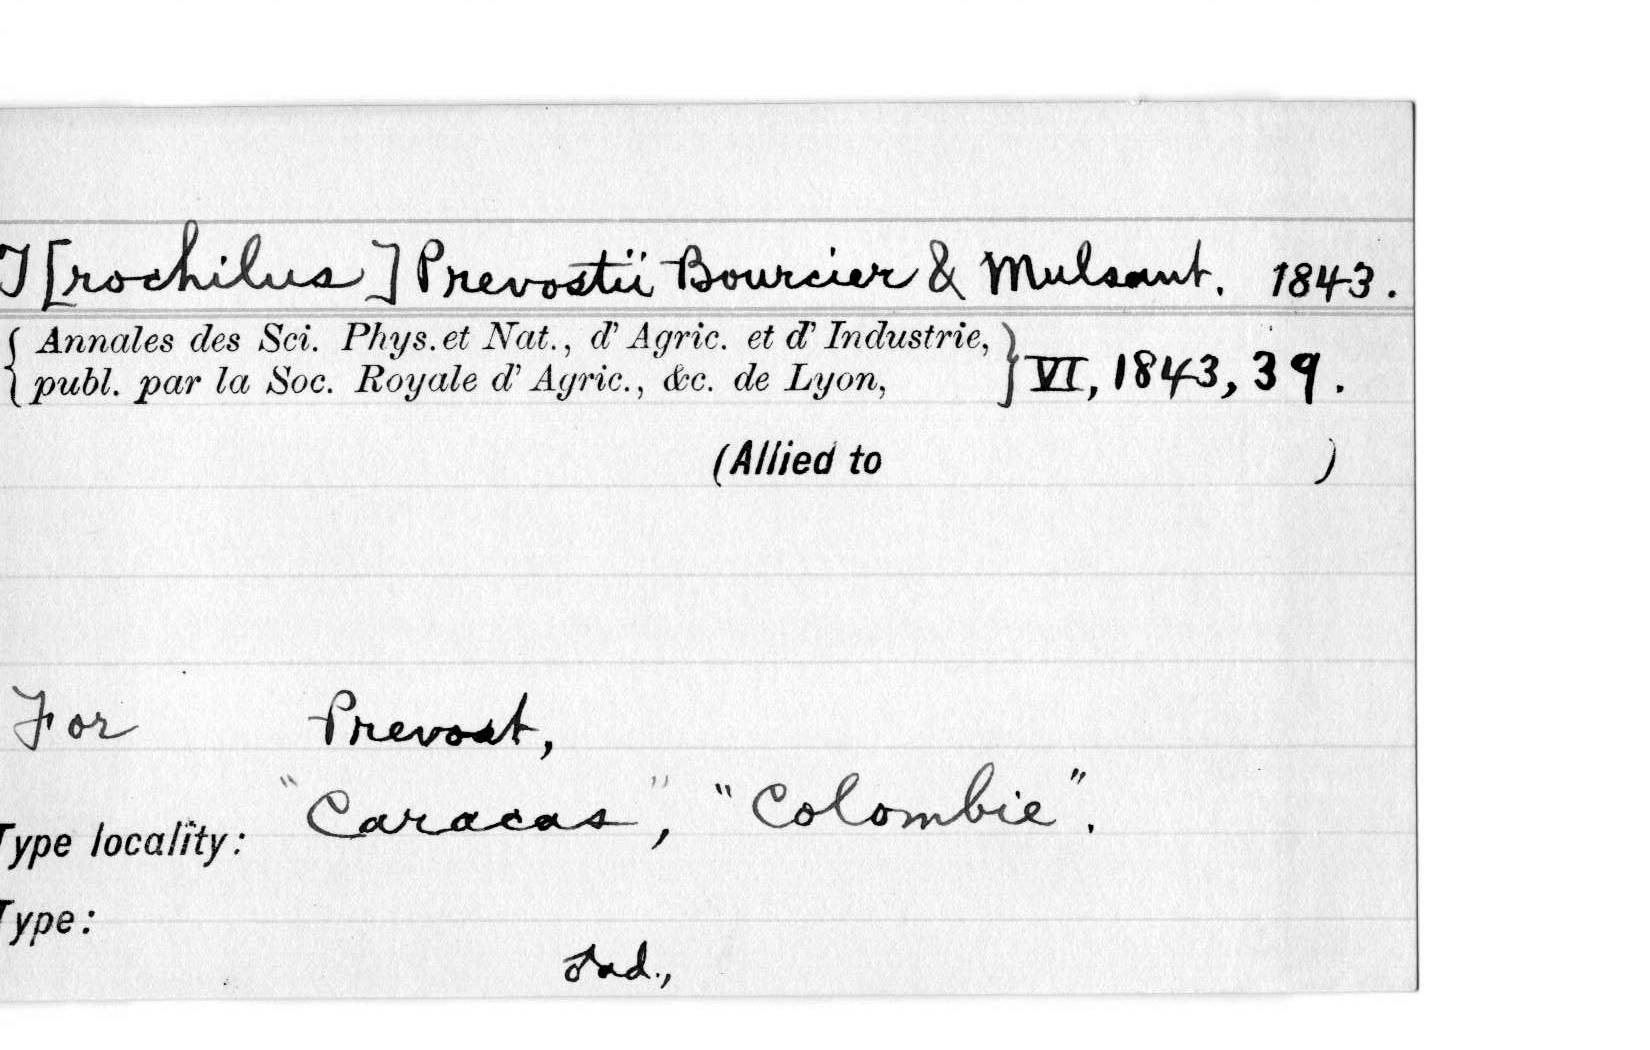 T[rochilus] Prevostii Bourcier & Mulsant. 1843.
{ Annales des Sci. Phys. et Nat., d' Agric. et d' Industrie,
publ. par la Soc. Royale d' Agric., &c. de Lyon, } VI, 1843, 39.
(Allied to )
For Prevost,
Type locality: "Caracas", "Colombie".
Type:
Ind.,